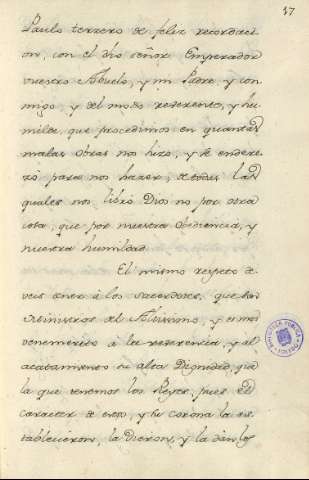 17
Paulo tercero de feliz recordaci
on, con el dho señor Emperador
vuestro Abuelo, y mi Padre, y con
migo, y del modo reverente, y hu
milde, que procedimos en quantas
malas obras nos hizo, y se endere
zó para nos hazer, de todas las
quales nos libró Dios no por otra
cosa, que por nuestra obediencia, y
nuestra humildad.
El mismo respeto de
veis tener á los sacerdotes, que son
Ministros del Altissimo, y es mas
á la reverencia, y al
acatamiento su alta Dignidad, que
la que tenemos los Reyes, pues el
caracter de esto, y la corona la es
tablecieron, la dieron, y la dan los
BIBLIOTECA PUBLICA
TOLEDO